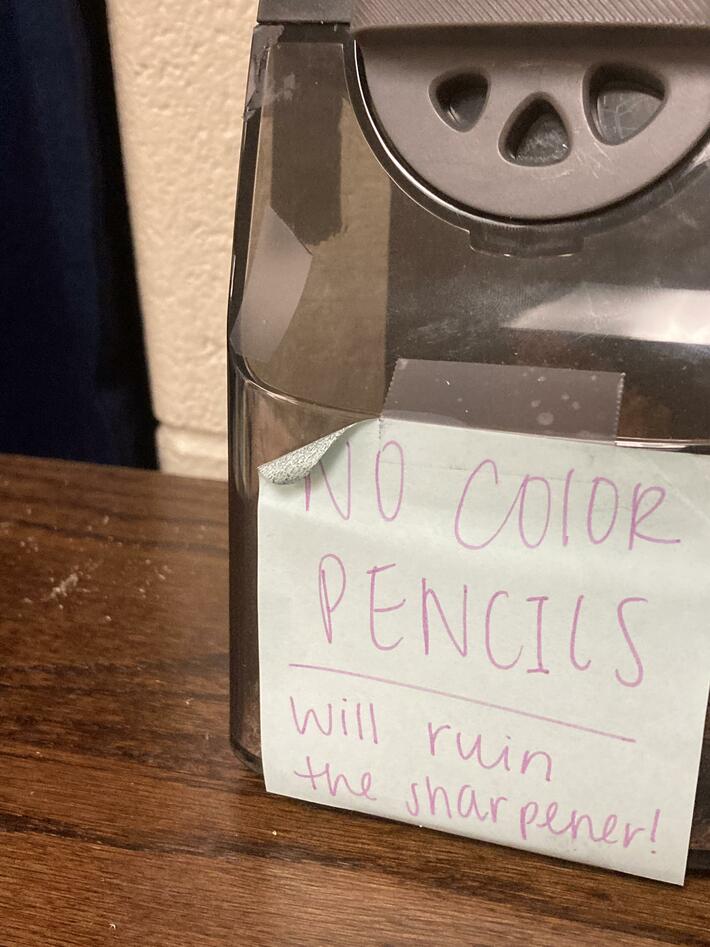 NO COlOR
PENCILS
will ruin
the sharpener!